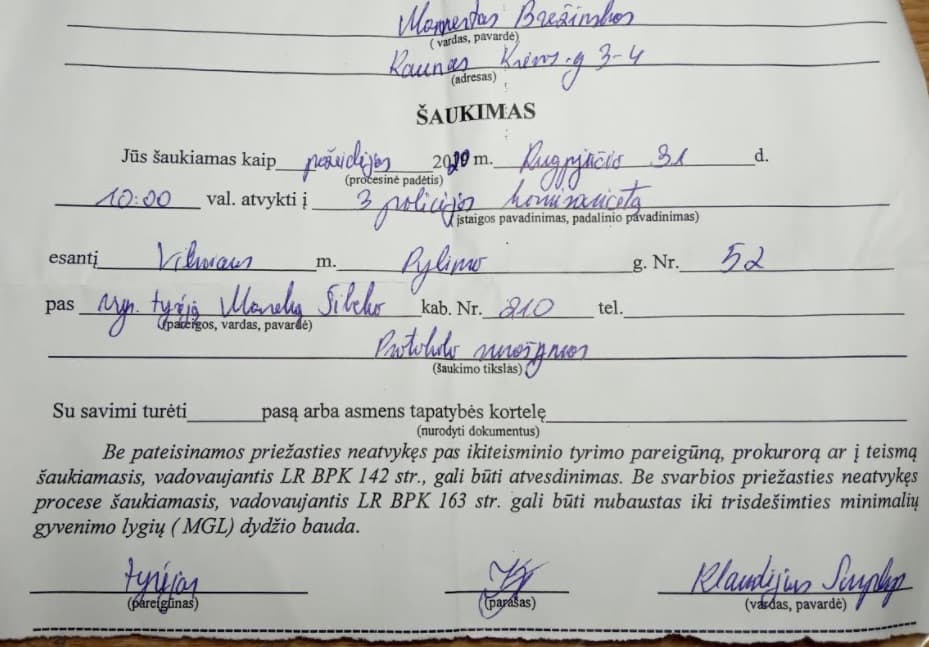 Momentas Brežinskas
(vardas, pavardė)
Kaunas Krėvos g 3-4
(adresas)
ŠAUKIMAS
Jūs šaukiamas kaip pažeidėjas 2020 m. Rugpjūčio 31 d.
(procesinė padėtis)
10:00 val. atvykti į 3 policijos komisariatą
(įstaigos pavadinimas, padalinio pavadinimas)
esantį Vilniaus m. Pylimo g. Nr. 52
pas vyr. tyrėją kab. Nr. 210 tel.
(pareigos, vardas, pavardė)
Protokolo
(šaukimo tikslas)
Su savimi turėti pasą arba asmens tapatybės kortelę
(nurodyti dokumentus)
Be pateisinamos priežasties neatvykęs pas ikiteisminio tyrimo pareigūną, prokurorą ar į teismą
šaukiamasis, vadovaujantis LR BPK 142 str., gali būti atvesdinimas. Be svarbios priežasties neatvykęs
procese šaukiamasis, vadovaujantis LR BPK 163 str. gali būti nubaustas iki trisdešimties minimalių
gyvenimo lygių ( MGL) dydžio bauda.
tyrėjas Klaudijus
(pareigūnas) (parašas) (vardas, pavardė)